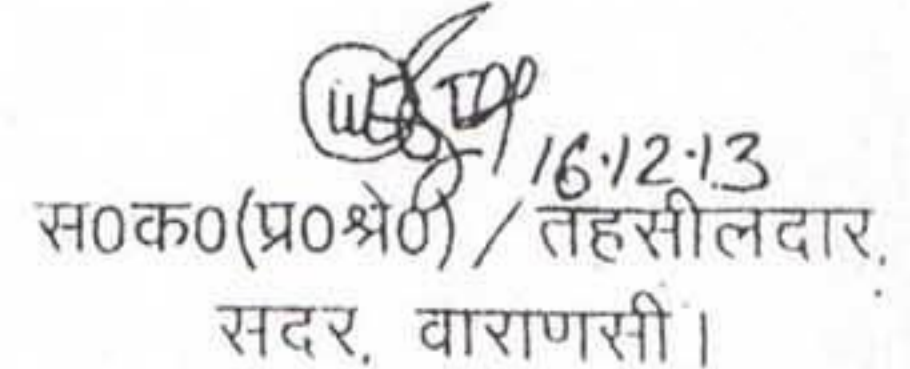 16.12.13
स०क०(प्र०श्रे०) / तहसीलदार,
सदर, वाराणसी।